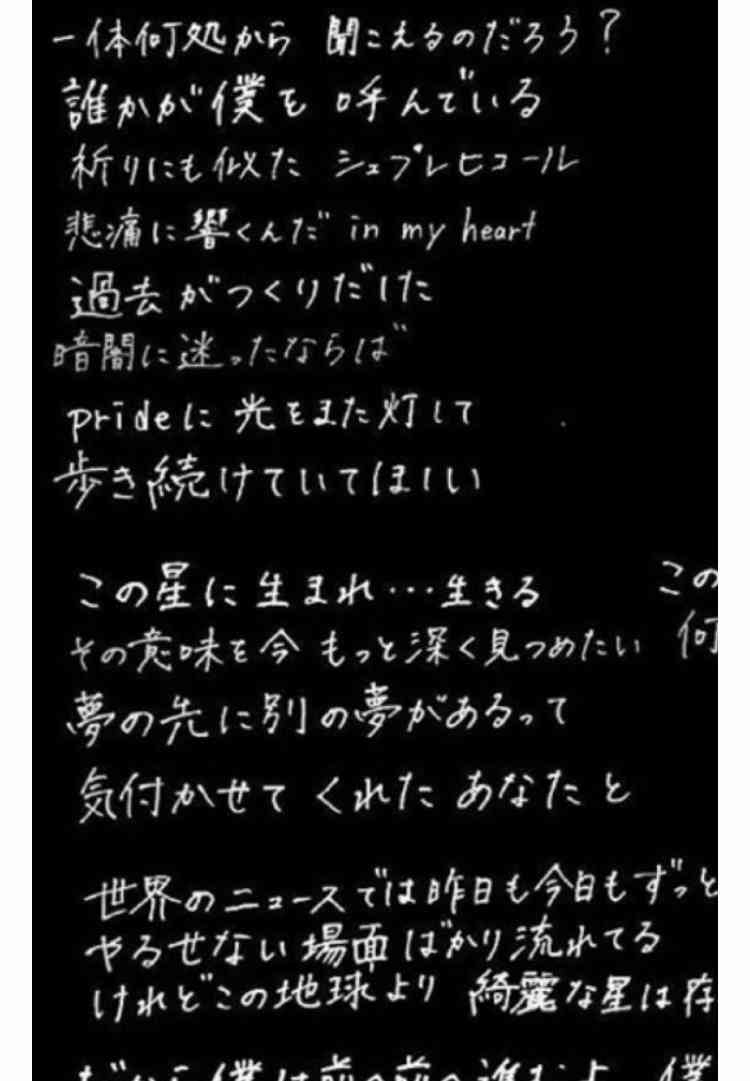 一体何処から 聞こえるのだろう？
誰かが僕を 呼んでいる
祈りにも似た シュプレヒコール
悲痛に響くんだ in my heart
過去がつくりだした
暗闇に迷ったならば
prideに 光をまた灯して
歩き続けていてほしい
この星に 生まれ…生きる
その意味を今 もっと深く見つめたい
夢の先に別の夢があるって
気付かせて くれた あなたと
この
何
世界のニュースでは昨日も今日もずっと
やるせない場面ばかり流れてる
けれどこの地球より 綺麗な星は存
だから僕は前へ前へ進むよ 僕